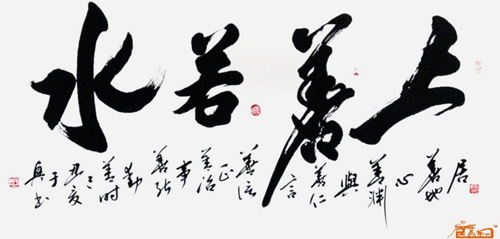 上善若水
居善地
心善渊
與善仁
言善信
正善治
事善能
動善时